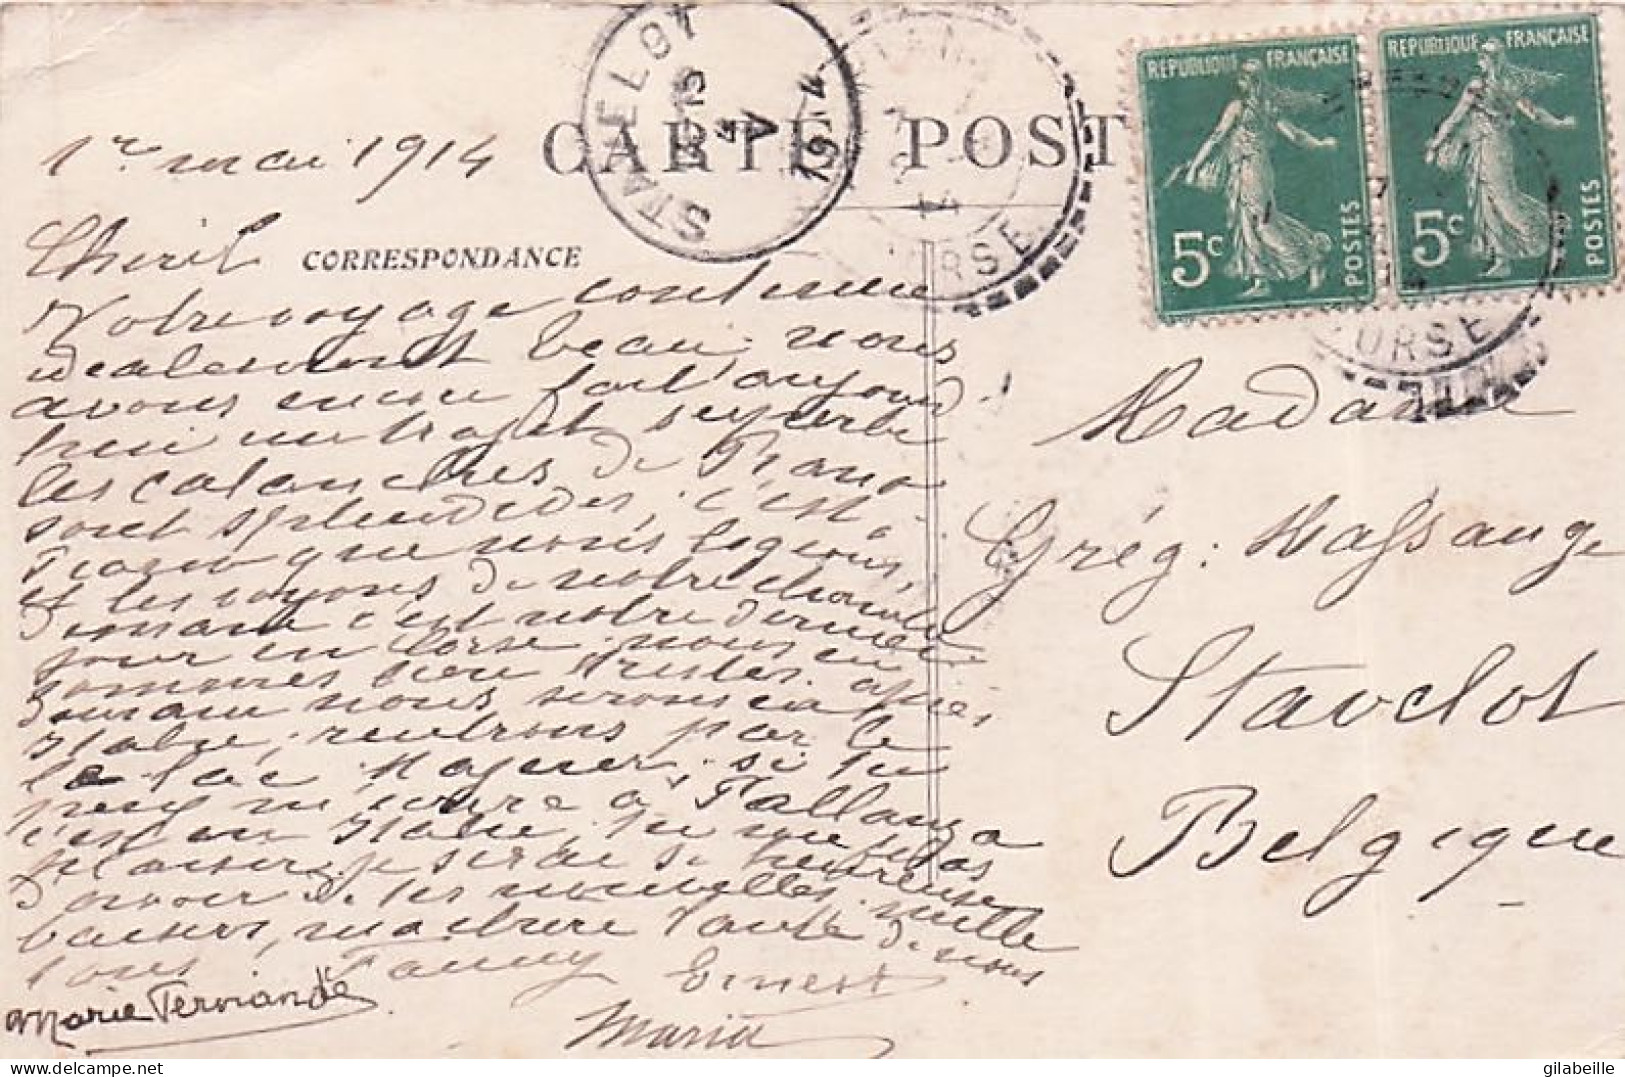 CARTE POST
CORRESPONDANCE
STAVELOT
CORSE
RÉPUBLIQUE FRANÇAISE
5c
POSTES
RÉPUBLIQUE FRANÇAISE
5c
POSTES
CORSE
1er mai 1914
Notre voyage continue
idéalement beau; nous
avons encore fait aujourd'
hui un trajet superbe
les calanches de Piana
sont splendides, c'est à
Piana que nous logeons,
et les voyons de notre chambre
Demain c'est notre dernier
jour en Corse, nous en
sommes bien tristes.
Demain nous serons en
Italie, rentrons par le
le lac Majeur, si tu
peux m'écrire à Pallanza
c'est en Italie, tu me
je serai si heureuse
d'avoir de tes nouvelles. mille
baisers, ma chère Tante de nous
tous Fanny Ernest
Marie Fernande
Maria
Madame
Grég: Massange
Stavelot
Belgique
gilabeille